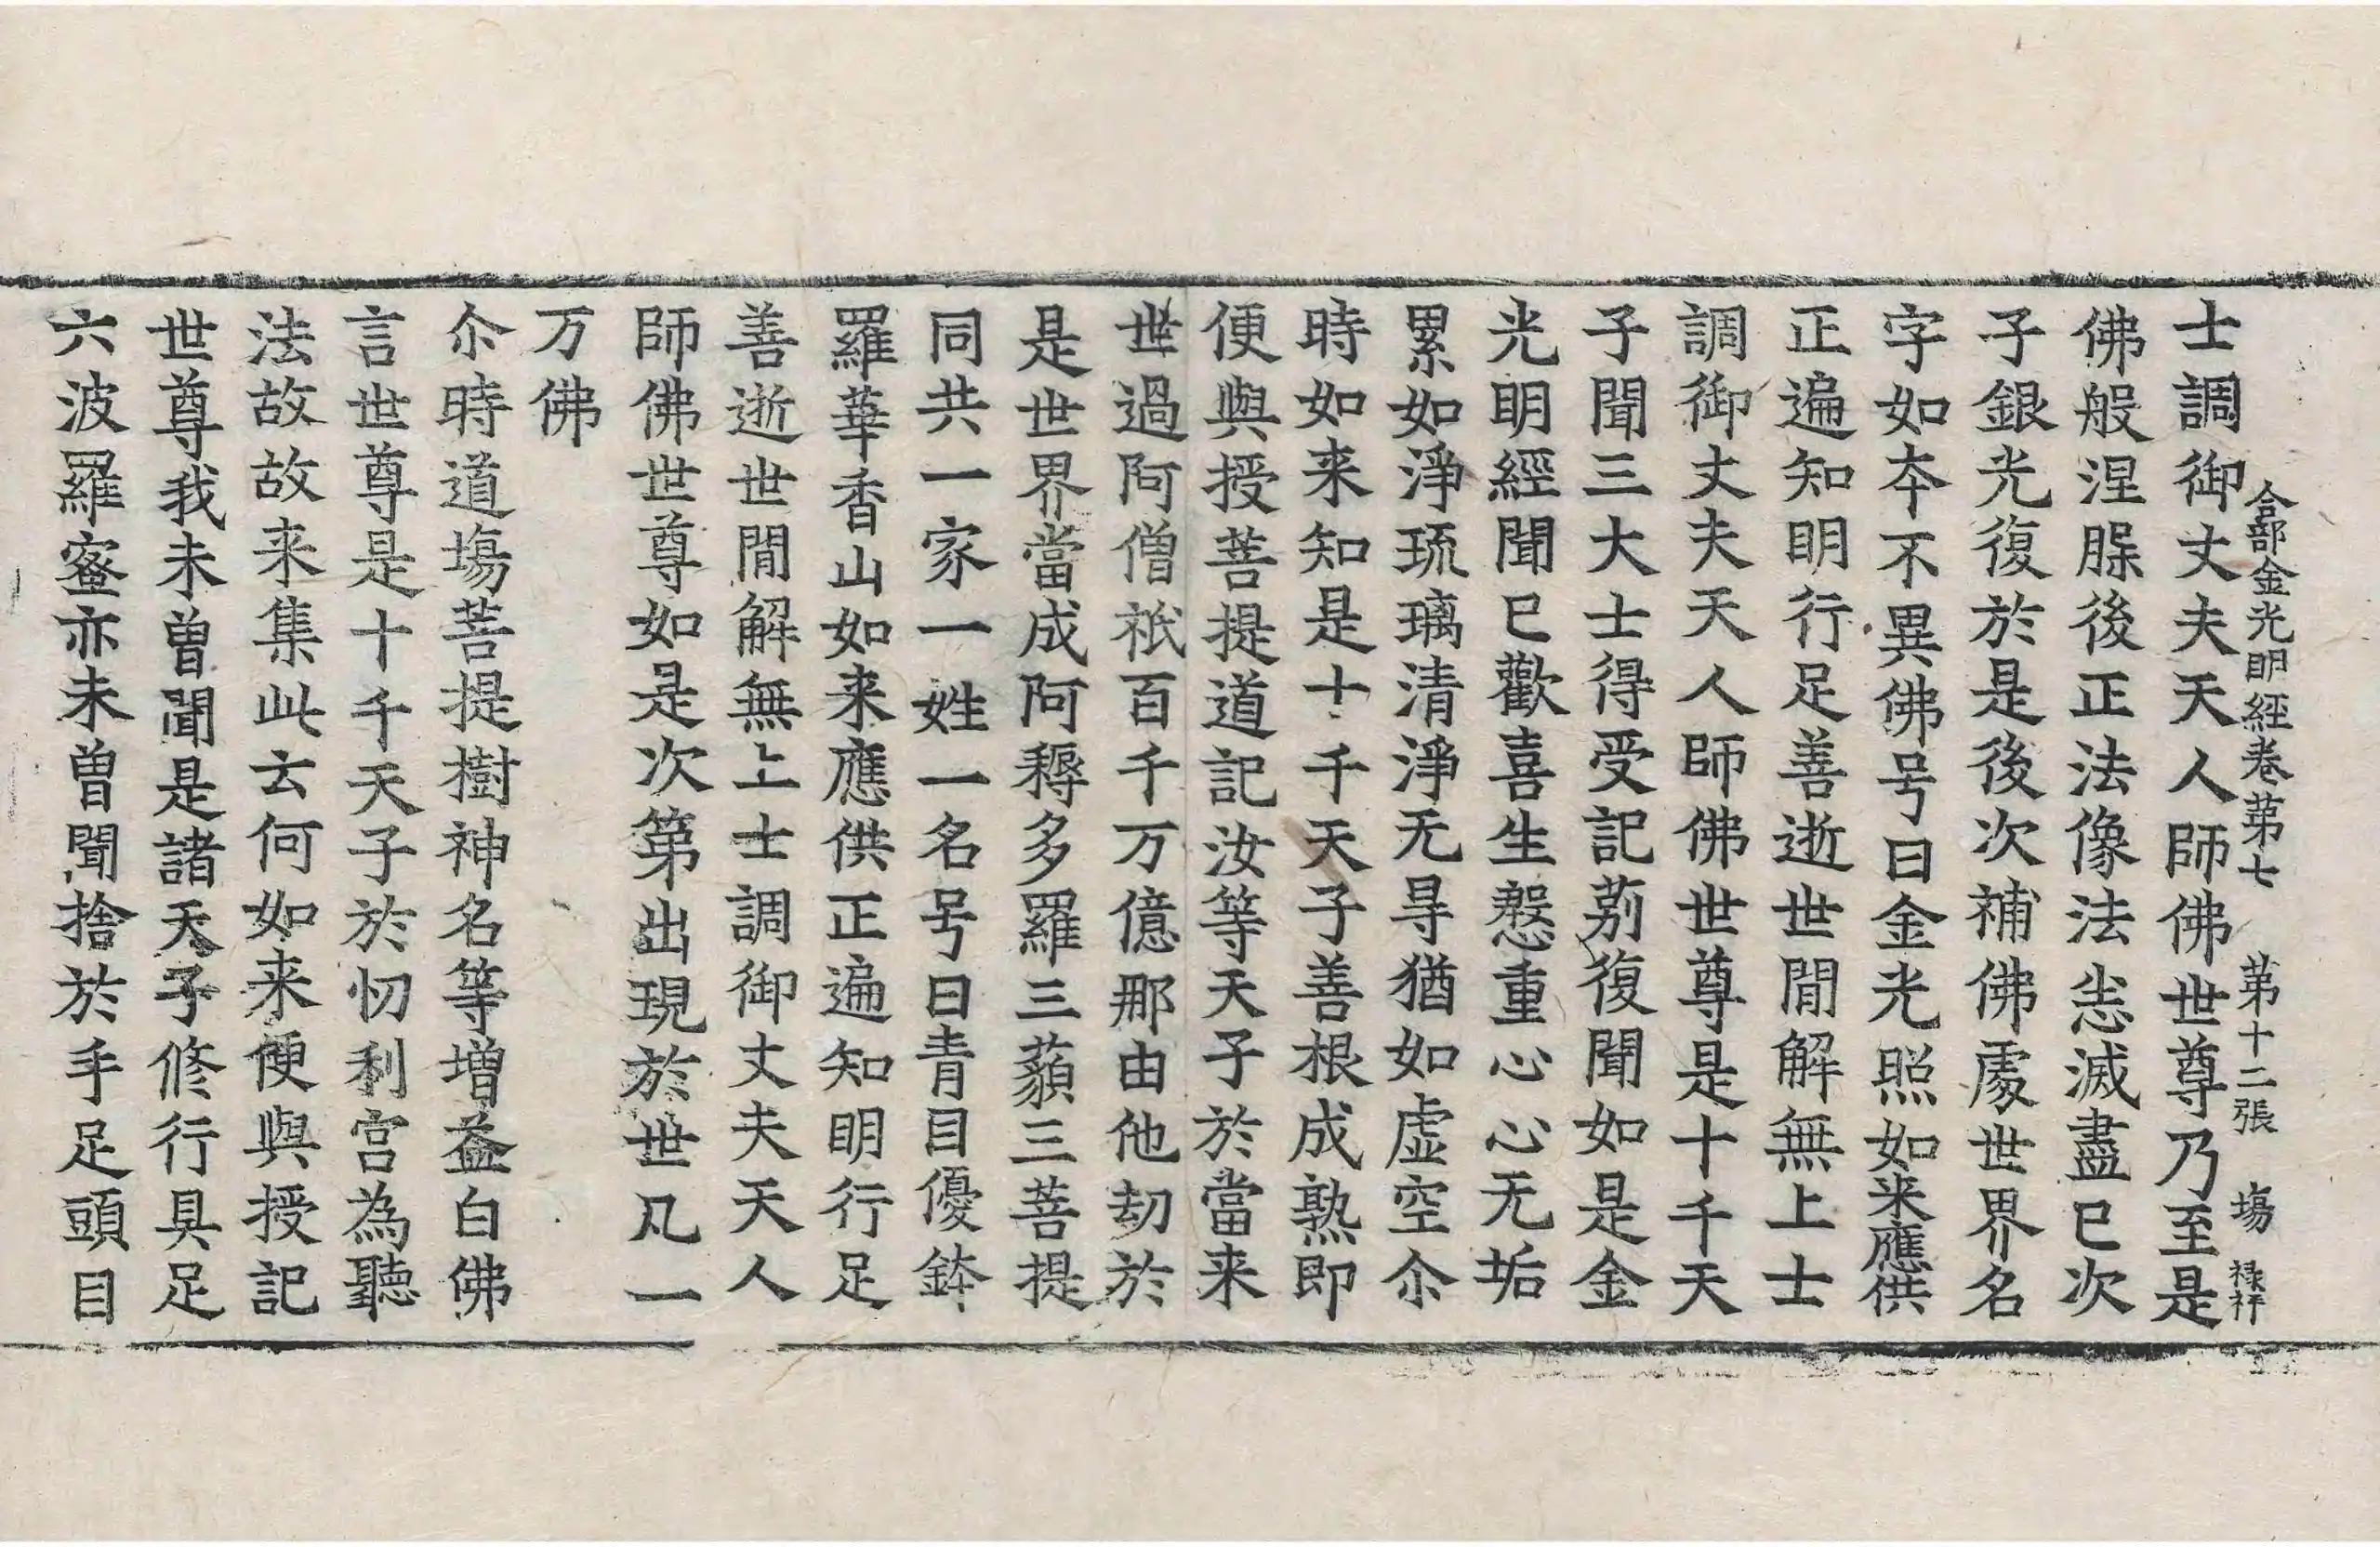 合部金光明經卷第七 第十二張 場 祿祥
士調御丈夫天人師佛世尊乃至是
佛般涅脵後正法像法恙滅盡已次
子銀光復於是後次補佛處世界名
字如夲不異佛号曰金光照如来應供
正遍知明行足善逝世閒解無上士
調御丈夫天人師佛世尊是十千天
子聞三大士得受記莂復聞如是金
光明經聞已歡喜生慇重心心无垢
累如淨琉璃清淨无㝵猶如虛空尒
時如来知是十千天子善根成熟即
便與授菩提道記汝等天子於當来
世過阿僧祇百千万億那由他劫於
是世界當成阿耨多羅三藐三菩提
同共一家一姓一名号曰青目優鉢
羅華香山如来應供正遍知明行足
善逝世閒解無上士調御丈夫天人
師佛世尊如是次第出現於世凡一
万佛
尒時道場菩提樹神名等增益白佛
言世尊是十千天子於忉利宫為聽
法故故来集此云何如来便與授記
世尊我未曾聞是諸天子修行具足
六波羅蜜亦未曾聞捨於手足頭目